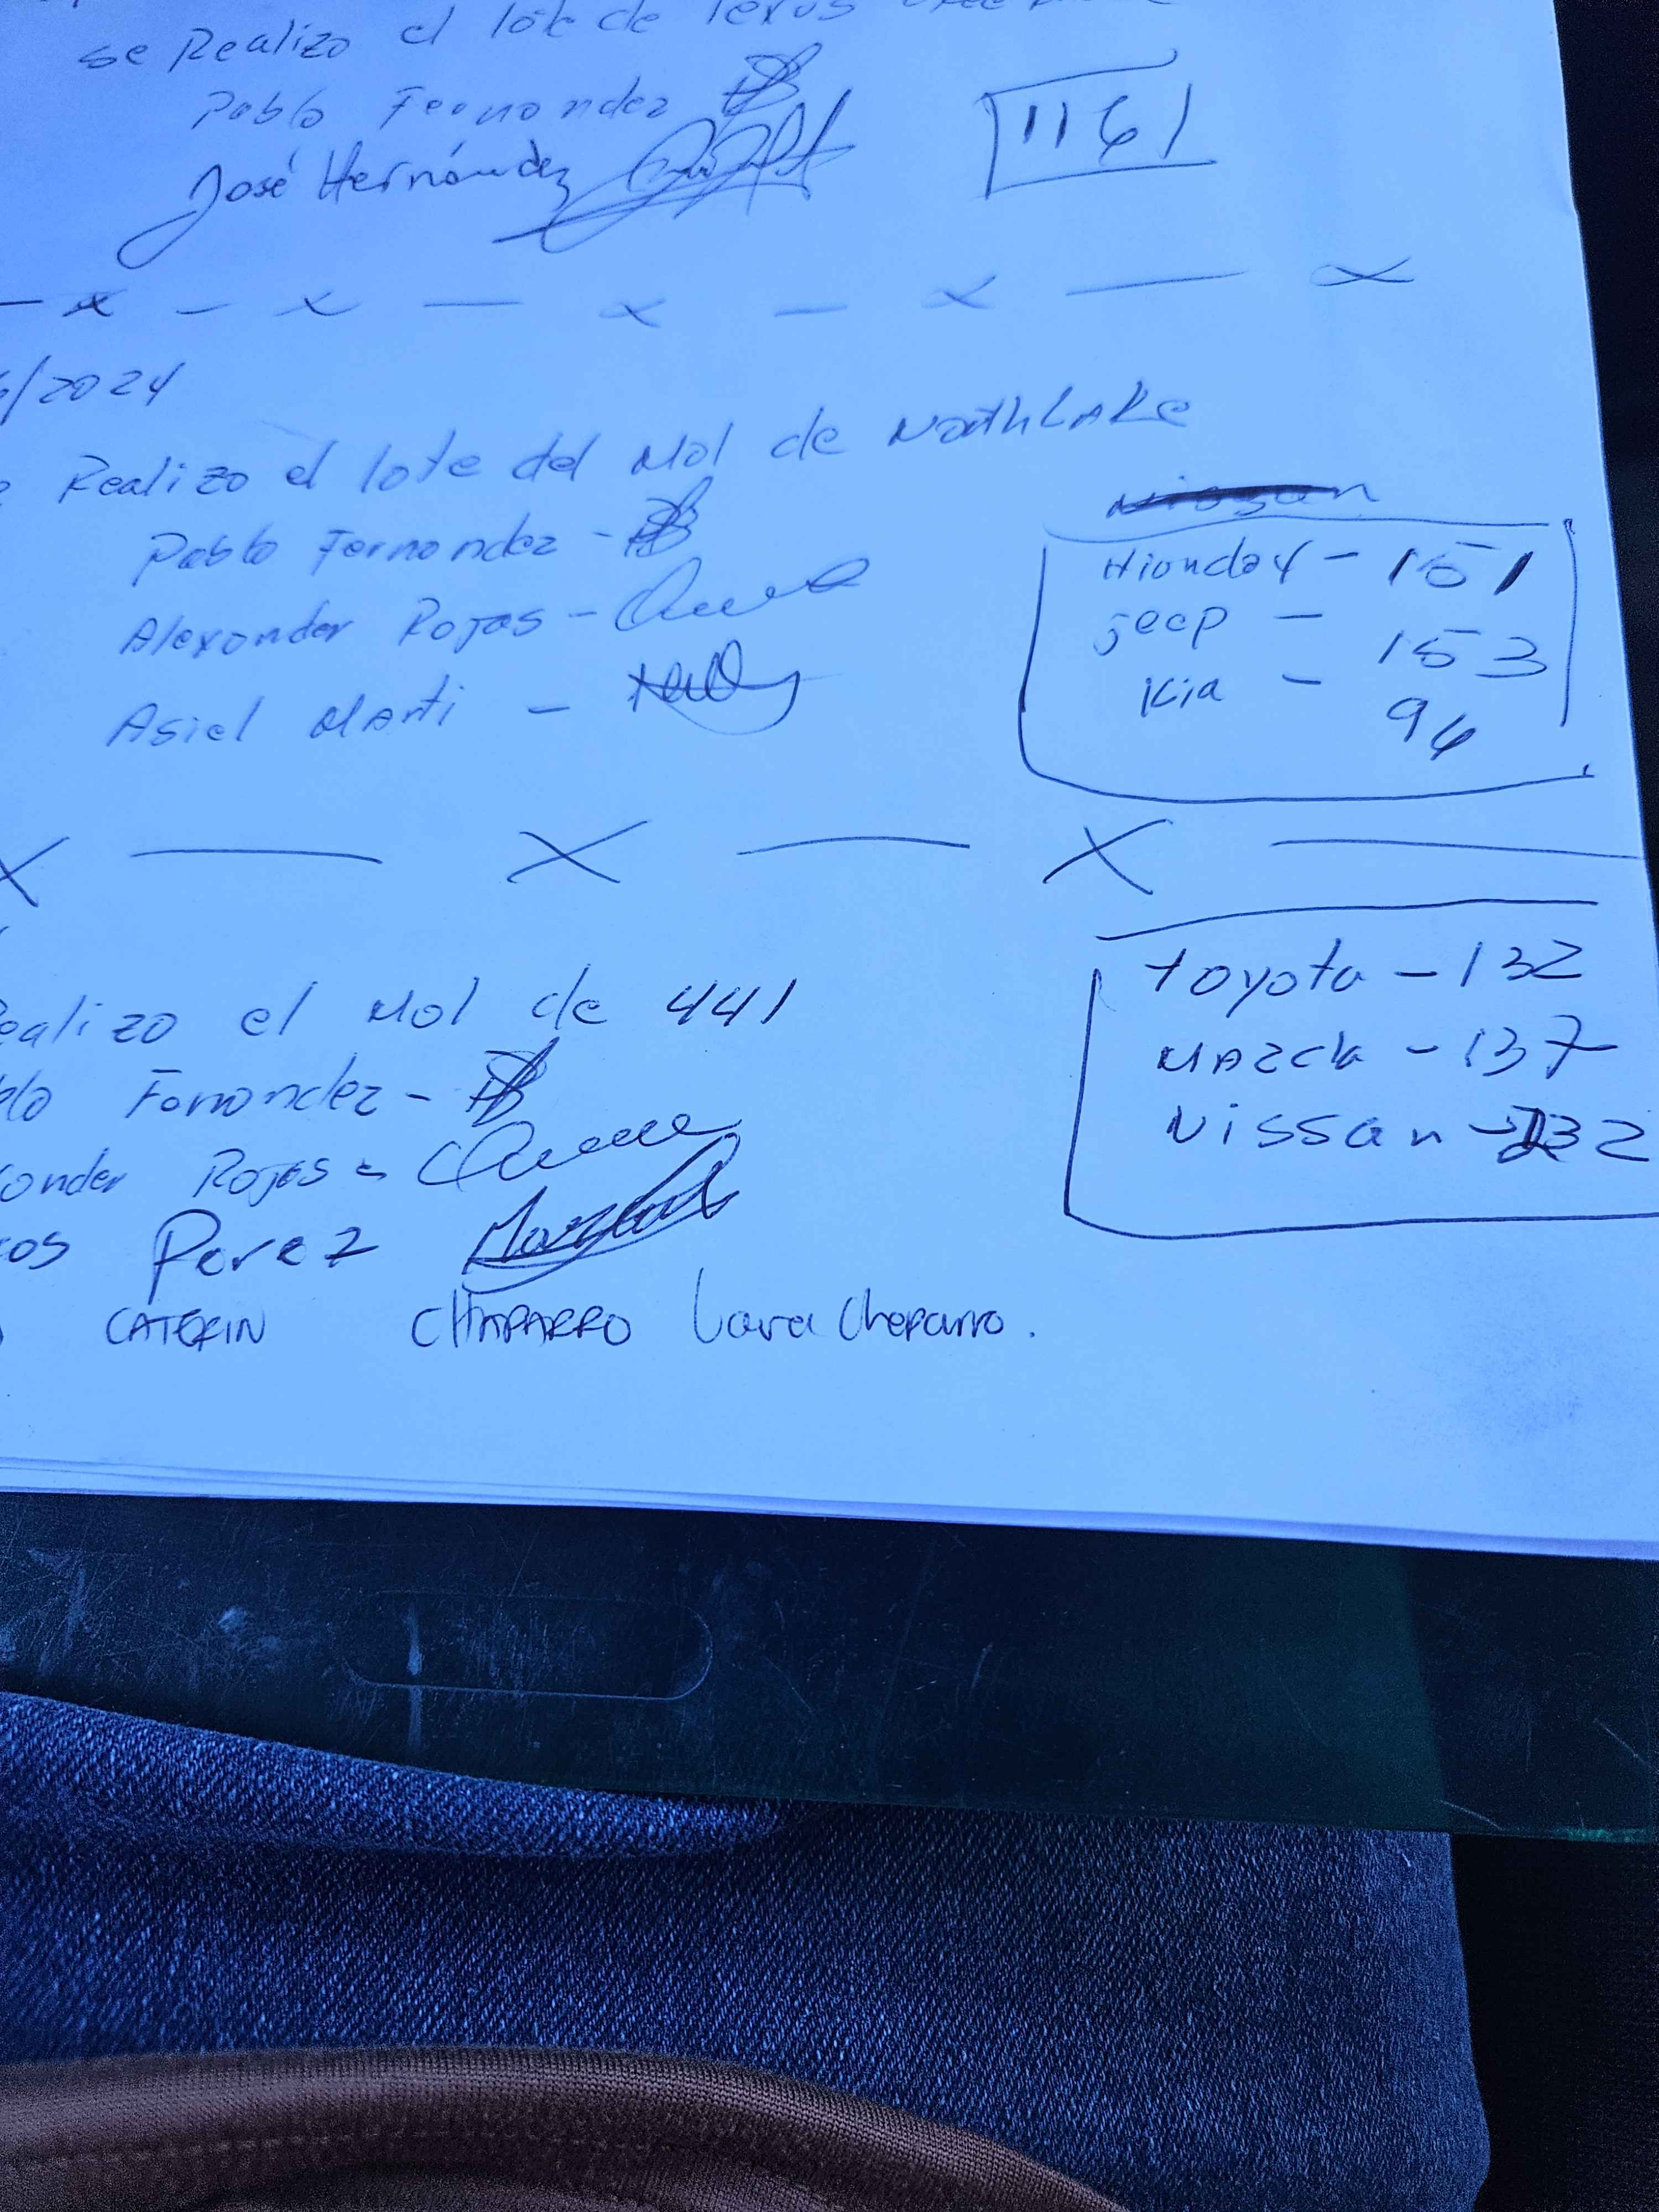 se Realizo el lote de lexus
Pablo Fernandez
1161
José Hernández
6/2024
Realizo el lote del Mol de NorthLAKe
Pablo Fernandez -
Hionday - 151
Jeep - 153
Alexander Rojas -
Kia - 94
Asiel MArti -
Toyota - 132
ealizo el Mol de 441
MAzda - 137
blo Fernandez -
Nissan - 132
onder Rojas -
cos Perez
CATERIN CHAPARRO Lara Chaparro.